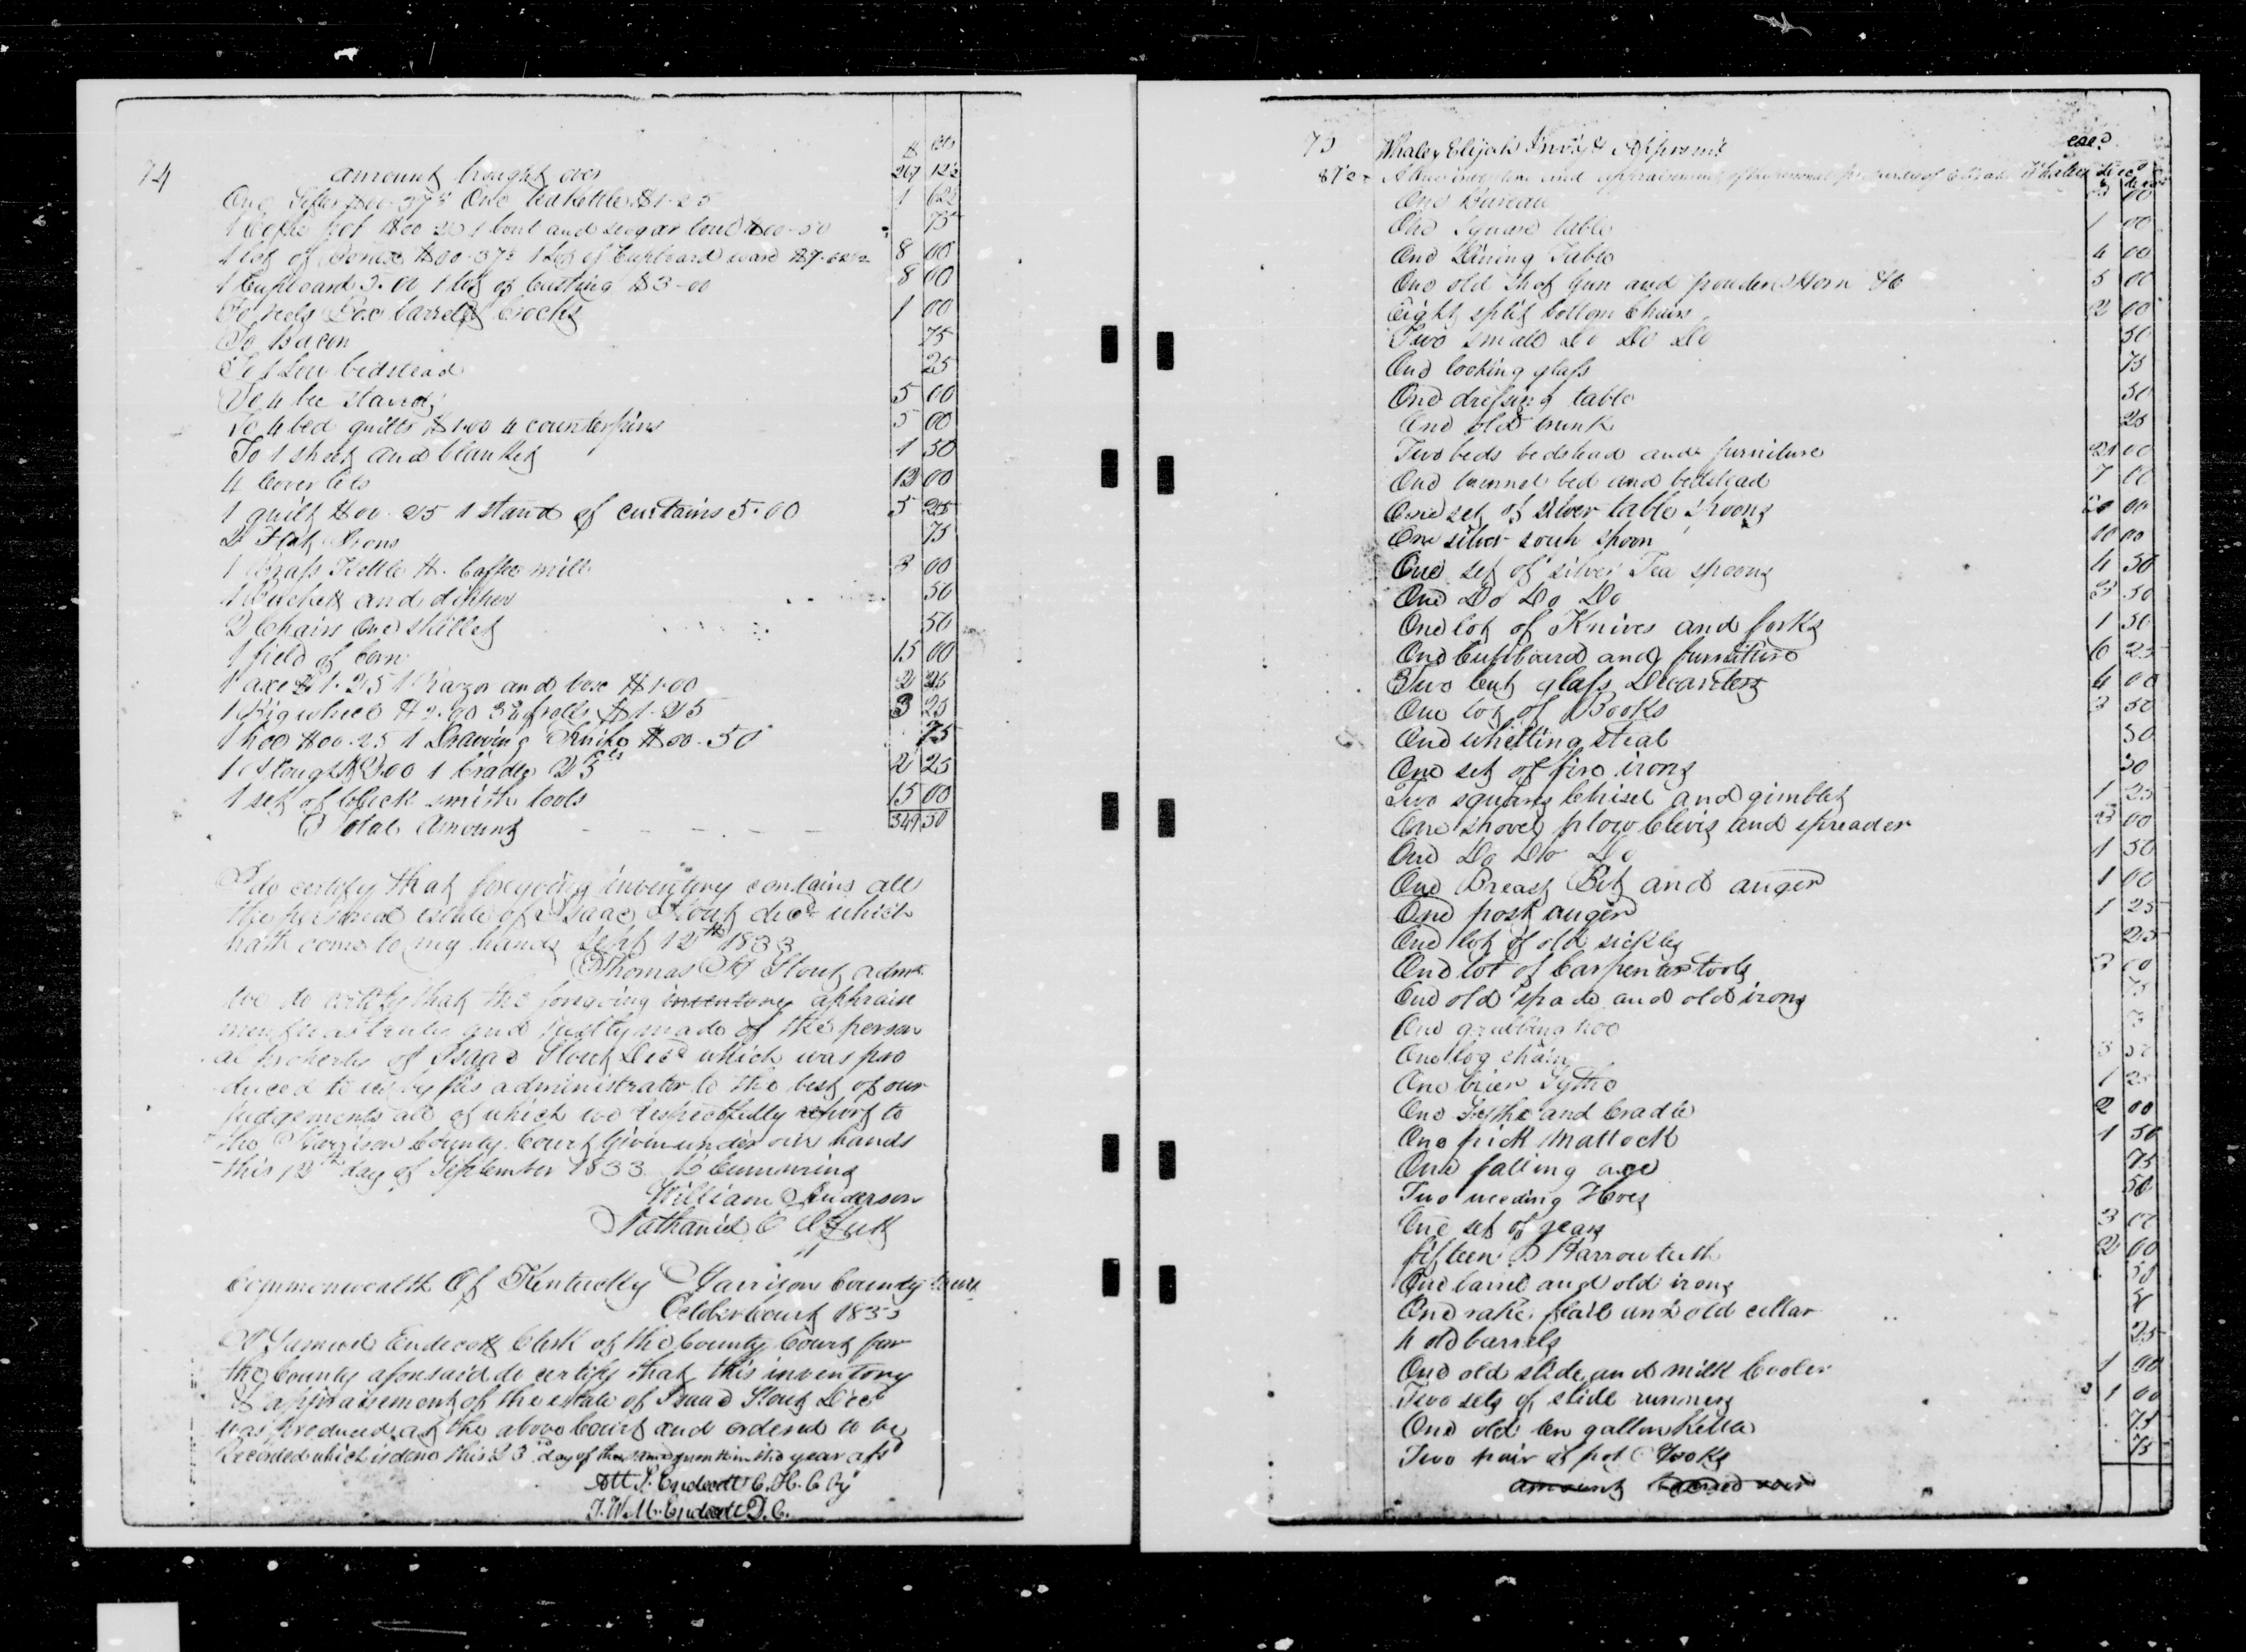 74
$ cts
amount brought over 267 12½
One Sifter $00-37½ One teakettle $1-25 1 62½
1 Coffee pot $00 25 1 bowl and sugar bowl $00-50 75
1 lot of $00-37½ 1 Lot of Cupboard ware $7-62½ 8 00
1 Cupboard 5.00 1 lot of Casting $3-00 8 00
To Box barrels Crocks 1 00
To Bacon 75
To 1 Low bedstead 25
To 4 bee stands 5 00
To 4 bed quilts $1.00 4 counterpins 5 00
To 1 sheet and blanket 1 50
4 Coverlets 12 00
1 quilt $00-25 1 stand of curtains 5.00 5 25
2 Flat Irons 75
1 Brass Kettle & Coffee mill 3 00
1 Bucket and dipper 50
2 Chairs One skillet 50
1 field of Corn 15 00
1 axe $1-25 1 Razor and box $1.00 2 25
1 Big wheel $2.00 $1-25 3 25
1 hoe $00.25 1 Drawing Knife $00-50 75
1 Plough $2.00 1 Cradle 25 cts 2 25
1 set of black smith tools 15 00
Total Amount 349 50
I do certify that foregoing inventory contains all
the personal estate of Isaac Stout decd which
hath come to my hands Sept 12th 1833
Thomas Stout admr
We do certify that the foregoing inventory appraise
ment was truly and justly made of the person
al property of Isaac Stout Decd which was pro
duced to us by his administrator to the best of our
judgements all of which we respectfully report to
the Harrison County Court Given under our hands
this 12th day of September 1833
William Anderson
Nathaniel C
Commonwealth Of Kentucky Harrison County
October Court 1833
I Samuel Endicott Clerk of the County Court for
the County aforesaid do certify that this inventory
& appraisement of the estate of Isaac Stout Decd
was produced at the above Court and ordered to be
Recorded which is done this 23rd day of the same month in the year afsd
Att S. Endicott C. H. C by
J. W. M. Endicott D. C.
75
Whaley Elijah Invy & Apprsmt
A true inventory and appraisement of the personal property of Elijah Whaley decd
One Bureau
One Square table 1 00
One Dining Table 4 00
One old Shot Gun and powder Horn &c 5 00
Eight split bottom Chairs 2 00
Two small Do Do Do 50
One looking glass 75
One dressing table 50
One old trunk 25
Two beds bedstead and furniture 21 00
One trunnel bed and bedstead 7 00
One set of silver table Spoons 20 00
One silver soup spoon 10 00
One set of silver Tea spoons 4 50
One Do Do Do 3 50
One lot of Knives and forks 1 50
One Cupboard and furniture 6 25
Two Cut glass Decanters 4 00
One lot of Books 3 50
One whetting steal 50
One set of fire irons 50
Two squares Chisel and gimblet 1 25
One shovel plow Clevis and spreader 3 00
One Do Do Do 1 50
One Breast Bit and auger 1 00
One post auger 1 25
One lot of old sickles 25
One lot of Carpenters tools 3 00
One old spade and old irons 75
One grubbing hoe
One log chain 3 50
One brier Sythe 1 25
One Sythe and Cradle 2 00
One pick Mattock 1 50
One falling axe 75
Two weeding Hoes 50
One set of gears 3 00
fifteen Harrow teeth 2 00
One barrel and old irons 50
One rake flail and old collar
4 old barrels 25
One old slide and milk Cooler 1 00
Two sets of slide runners 1 00
One old ten gallon Kettle 75
Two pair of pot Hooks 75
amount Carried over